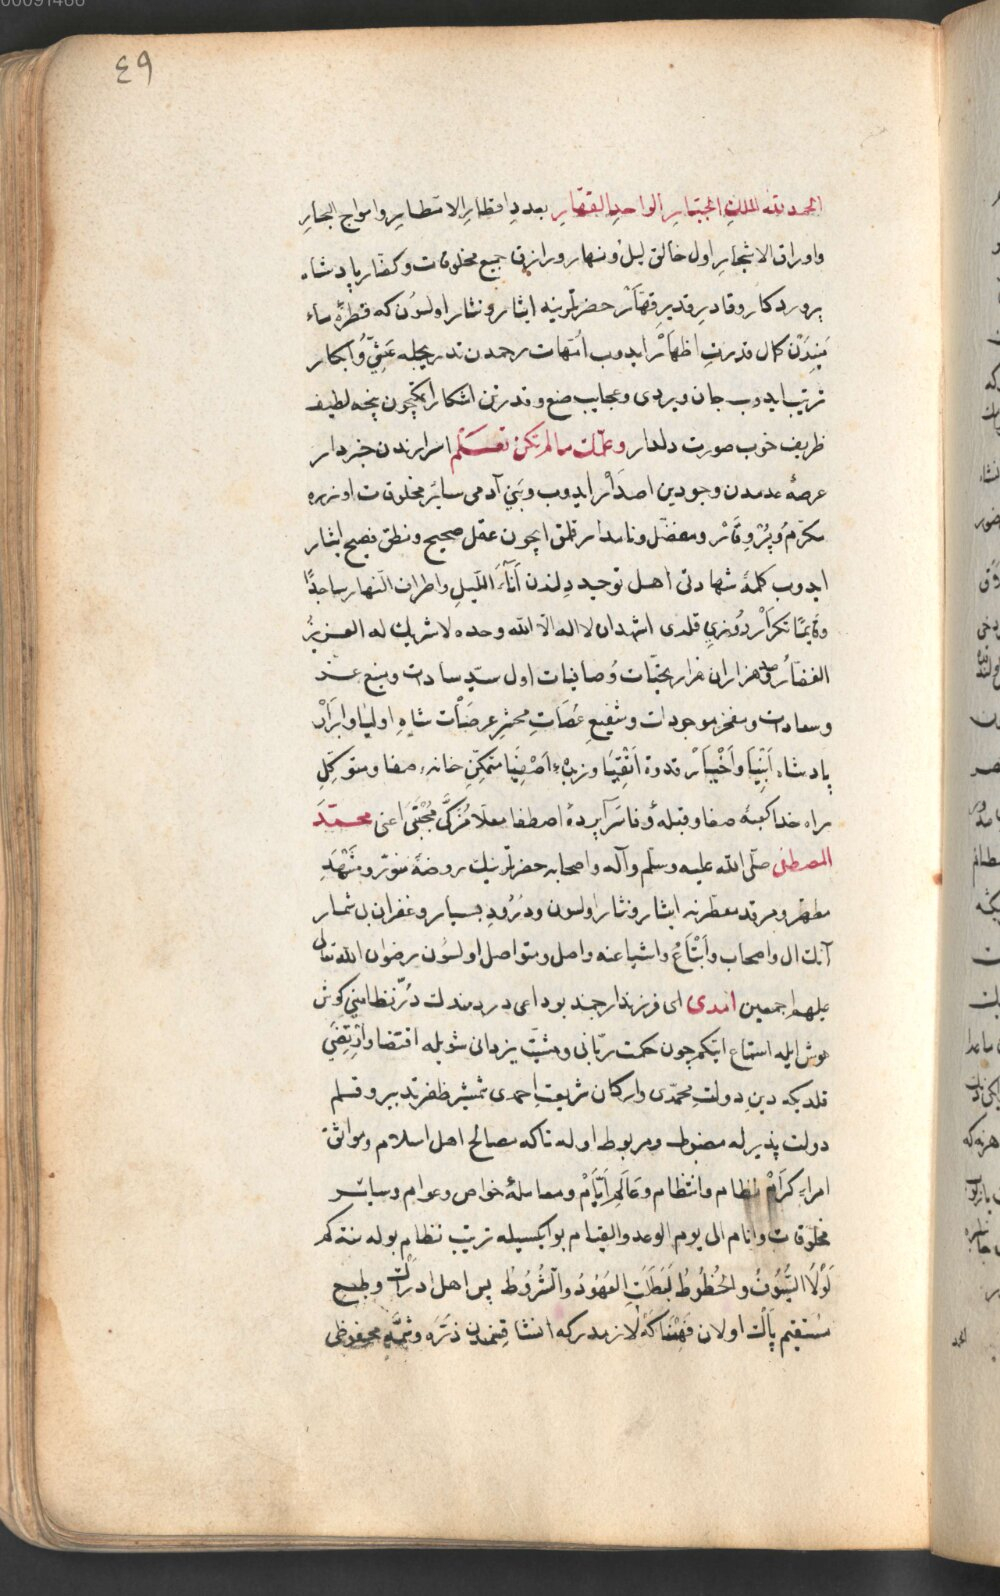 ٤٩
الحمد لله الملك الجبار الواحد القهار بعدد اقطار الامطار وامواج البحار
واوراق الاشجار اول خالق ليل ونهار ورازق جميع مخلوقات وكفار پادشاه
پروردكار وقادر قدير قهار حضرتلرينه ايثار ونثار اولسون كه قطرۀ ماء
كمال قدرت اظهار ايدوب امهات رحمدن تدريجله وابكار
ترتيب ايدوب جان ويردى وعجايب صنع وقدرتن اشكار ايتمكچون نيچه لطيف
ظريف خوب صورت دلدار وعلمك ما لم تكن تعلم اسرارندن خبردار
عرصۀ عدمدن وجودين اصدار ايدوب وبنى آدمى ساير مخلوقات اوزره
مكرم وپر وقار ومفضل ونامدار قلمق ايچون عقل صحيح ونطق فصيح ايثار
ايدوب كلمۀ شهادتى اهل توحيد دلندن آناء الليل واطراف النهار ساجدًا
وقايمًا تكرار روزى قلدى اشهد ان لا اله الا الله وحده لا شريك له العزيز
الغفار وهزاران هزار تحيات وصافيات اول سيد سادات ومنبع عز
وسعادات ومفخر موجودات وشفيع عصات محشر عرصات شاه اوليا وابرار
پادشاه انبيا واخيار قدوۀ اتقيا وزبدۀ اصفيا متمكن خانۀ صفا ومتوكل
راه خدا كعبۀ صفا وقبلۀ وفا سراپردۀ اصطفا معلا مزكى مجتبى اعنى محمد
المصطفى صلى الله عليه وسلم وآله واصحابه حضرتلرينك روضۀ منور ومشهد
مطهر ومرقد معطرنه ايثار ونثار اولسون ودرود بسيار وغفران بى شمار
آنك ال واصحاب واتباع واشياعنه واصل ومتواصل اولسون رضوان الله تعالى
عليهم اجمعين امدى اى فرزند ارجمند بو داعى دردمندك در نظامينى كوش
هوش ايله استماع ايتكم چون حكمت ربانى ومشيت يزدانى شويله اقتضا وارتضى
قلديكه دين دولت محمدى واركان شريعت احمدى شمشير ظفر تدبير وقلم
دولت پذير له مضبوط ومربوط اوله تا كه مصالح اهل اسلام وموانق
امراء كرام نظام وانتظام وعالم ايام ومعاملۀ خواص وعوام وساير
مخلوقات وانام الى يوم الوعد والقيام بو ايكسيله ترتيب نظام بوله نته كم
لولا السيوف والخطوط لبطلت العهود والشروط پس اهل ادراك وطبع
مستقيم پاك اولان لازمدر كه انشا قسمندن ذره وشمه محفوظى